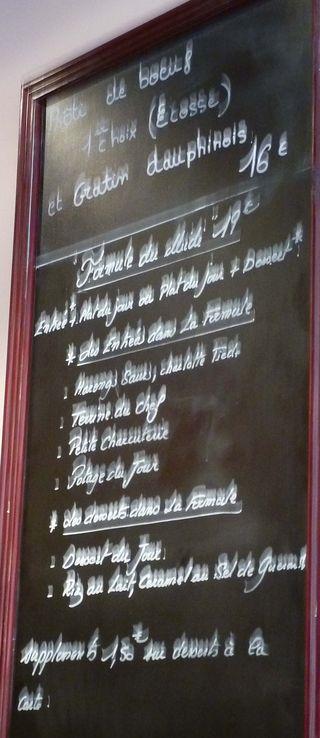 Rôti de boeuf
1er choix (Ecosse)
et Gratin dauphinois 16€
"Formule du Midi" 19€
Entrée + Plat du jour ou Plat du jour + Dessert
* Les Entrées dans La Formule
Harengs Saurs, charlotte Tiède
Terrine du Chef
Petite Charcuterie
Potage du Jour
* Les desserts dans La Formule
Dessert du Jour
Riz au Lait Caramel au Sel de
supplements 1,50€ sur desserts à la
carte